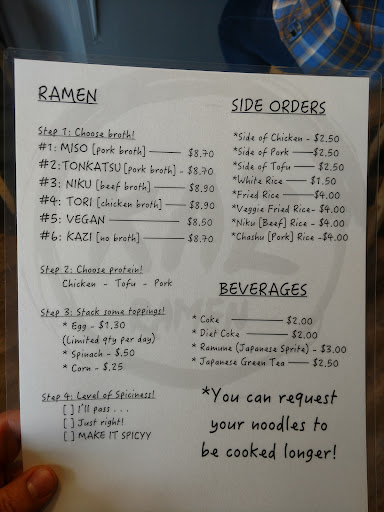 RAMEN
Step 1: Choose broth!
#1: MISO [pork broth] $8.70
#2: TONKATSU [pork broth] - $8.70
#3: NIKU [beef broth] $8.90
#4: TORI [chicken broth] $8.90
#5: VEGAN $8.50
#6: KAZI [no broth] $8.70
Step 2: Choose protein!
Chicken - Tofu - Pork
Step 3: Stack some toppings!
* Egg - $1.30
(Limited qty per day)
* Spinach - $.50
* Corn - $.25
Step 4: Level of Spiciness!
[ ] I'll pass . . .
[ ] Just right!
[ ] MAKE IT SPICYY
SIDE ORDERS
*Side of Chicken - $2.50
*Side of Pork $2.50
*Side of Tofu $2.50
*White Rice $1.50
*Fried Rice $4.00
*Veggie Fried Rice- $4.00
*Niku [Beef] Rice - $4.00
*Chashu [Pork] Rice -$4.00
BEVERAGES
* Coke $2.00
* Diet Coke $2.00
* Ramune (Japanese Sprite) - $3.00
* Japanese Green Tea $2.50
*You can request
your noodles to
be cooked longer!